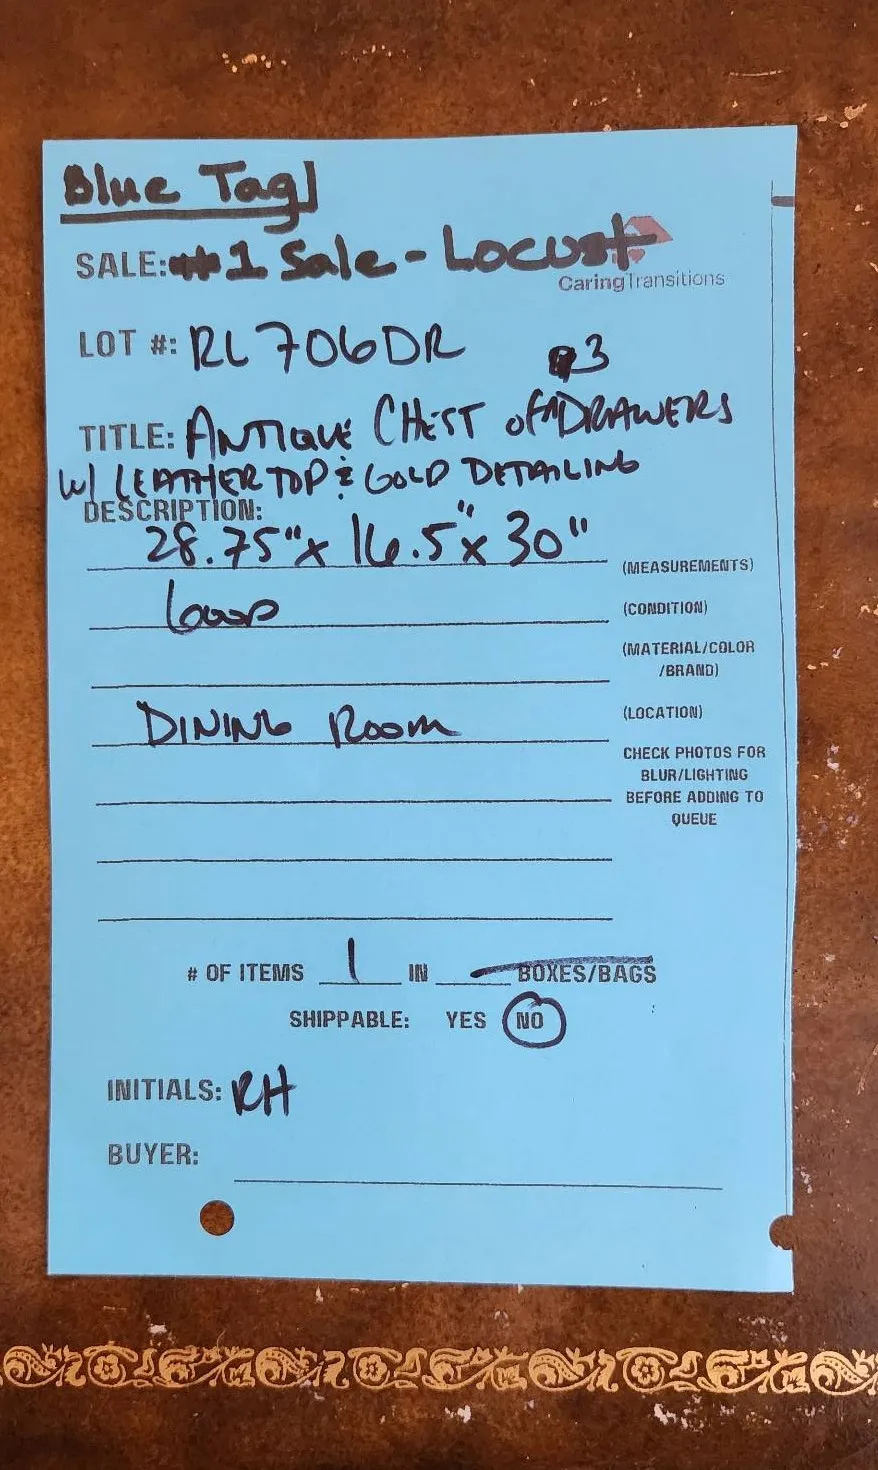 Blue Tag
SALE: #1 Sale - Locust
CaringTransitions
LOT #: RL706DR
3
TITLE: ANTIQUE CHEST of DRAWERS
W/ LEATHER TOP & GOLD DETAILING
DESCRIPTION:
28.75" x 16.5" x 30" (MEASUREMENTS)
GOOD (CONDITION)
(MATERIAL/COLOR
/BRAND)
DINING ROOM (LOCATION)
CHECK PHOTOS FOR
BLUR/LIGHTING
BEFORE ADDING TO
QUEUE
# OF ITEMS 1 IN BOXES/BAGS
SHIPPABLE: YES NO
INITIALS: RH
BUYER: